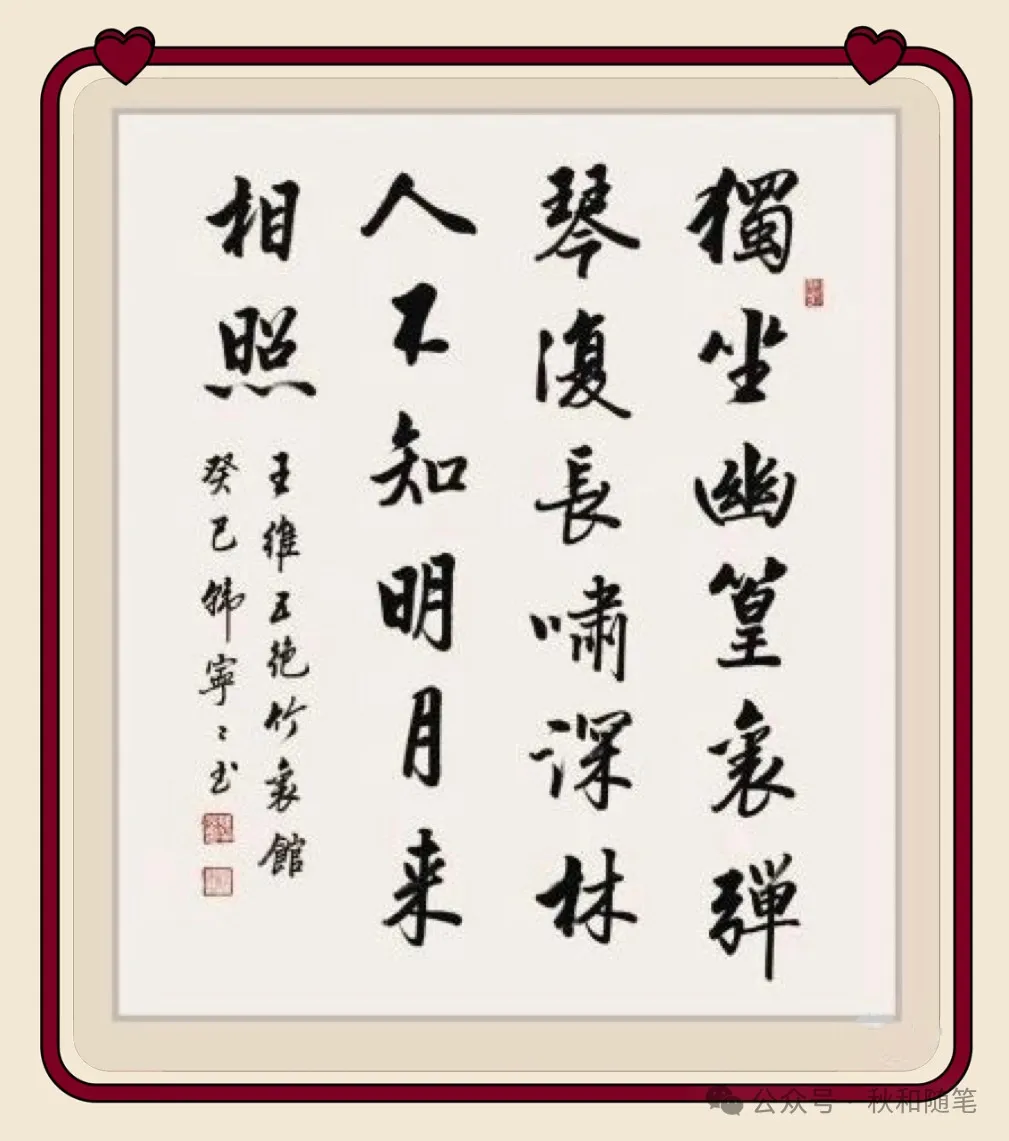 獨坐幽篁裏彈
琴復長嘯深林
人不知明月来
相照
王維五絶竹裏館
癸巳韩寧寧书
公众号·秋和随笔